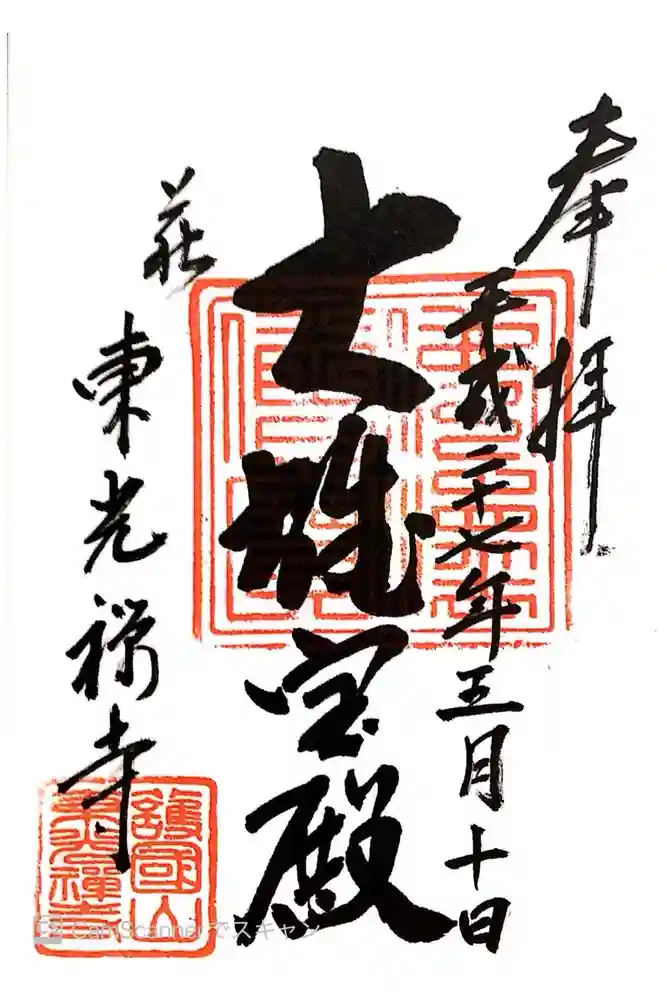 奉拝
平成二十七年五月十日
大雄宝殿
萩
東光禅寺
護國山
東光禪寺
CamScannerでスキャン